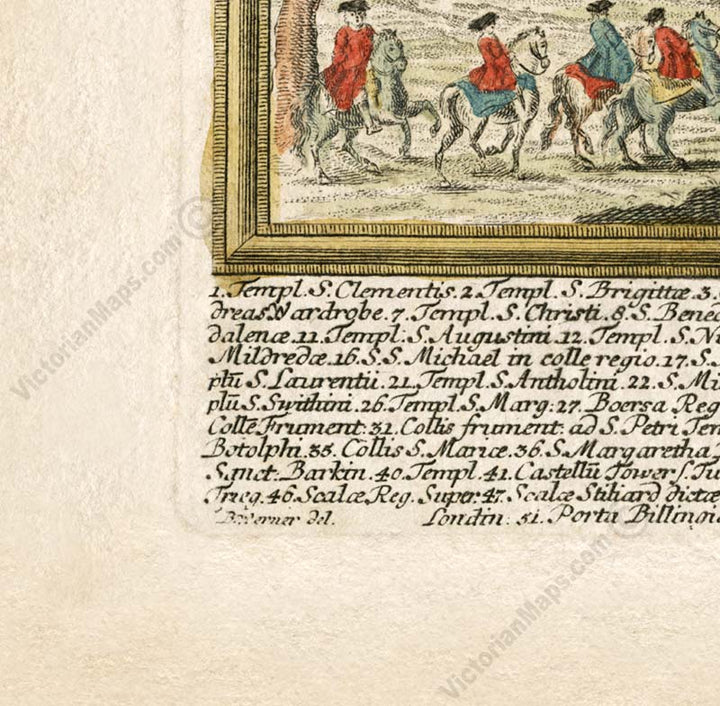 1. Templ. S. Clementis. 2. Templ. S. Brigittæ. 3.
dreas Wardrobe. 7. Templ. S. Christi. 8. S. Bened
dalenæ. 11. Templ: S. Augustini. 12. Templ. S. Ni
Mildredæ. 16. S.S. Michael in colle regio. 17. S.
plū S. Laurentii. 21. Templ. S. Antholini. 22. S. Mi
plū S. Swithini. 26. Templ. S. Marg: 27. Boersa Reg
Colle Frument: 31. Collis frument: ad S. Petri Tem
Botolphi. 35. Collis S. Mariæ. 36. S. Margaretha
Sanct: Barkin. 40. Templ. 41. Castellū Tower s. Tu
Trieg. 46. Scalæ Reg. Super: 47. Scalæ Stiliard dictæ
del. Londin: 51. Porta Billingi
VictorianMaps.com ©
VictorianMaps.com ©